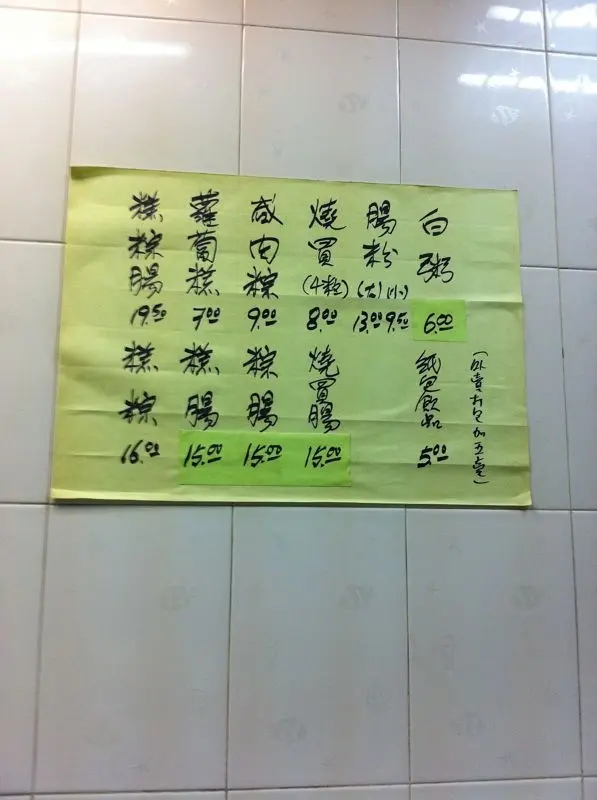 白粥
6.00
腸粉
(大)(小)
13.00 9.50
燒買
(4粒)
8.00
咸肉粽
9.00
蘿蔔糕
7.00
糕粽腸
19.50
(外賣打包加五毫)
紙包飲品
5.00
燒買腸
15.00
粽腸
15.00
糕腸
15.00
糕粽
16.00